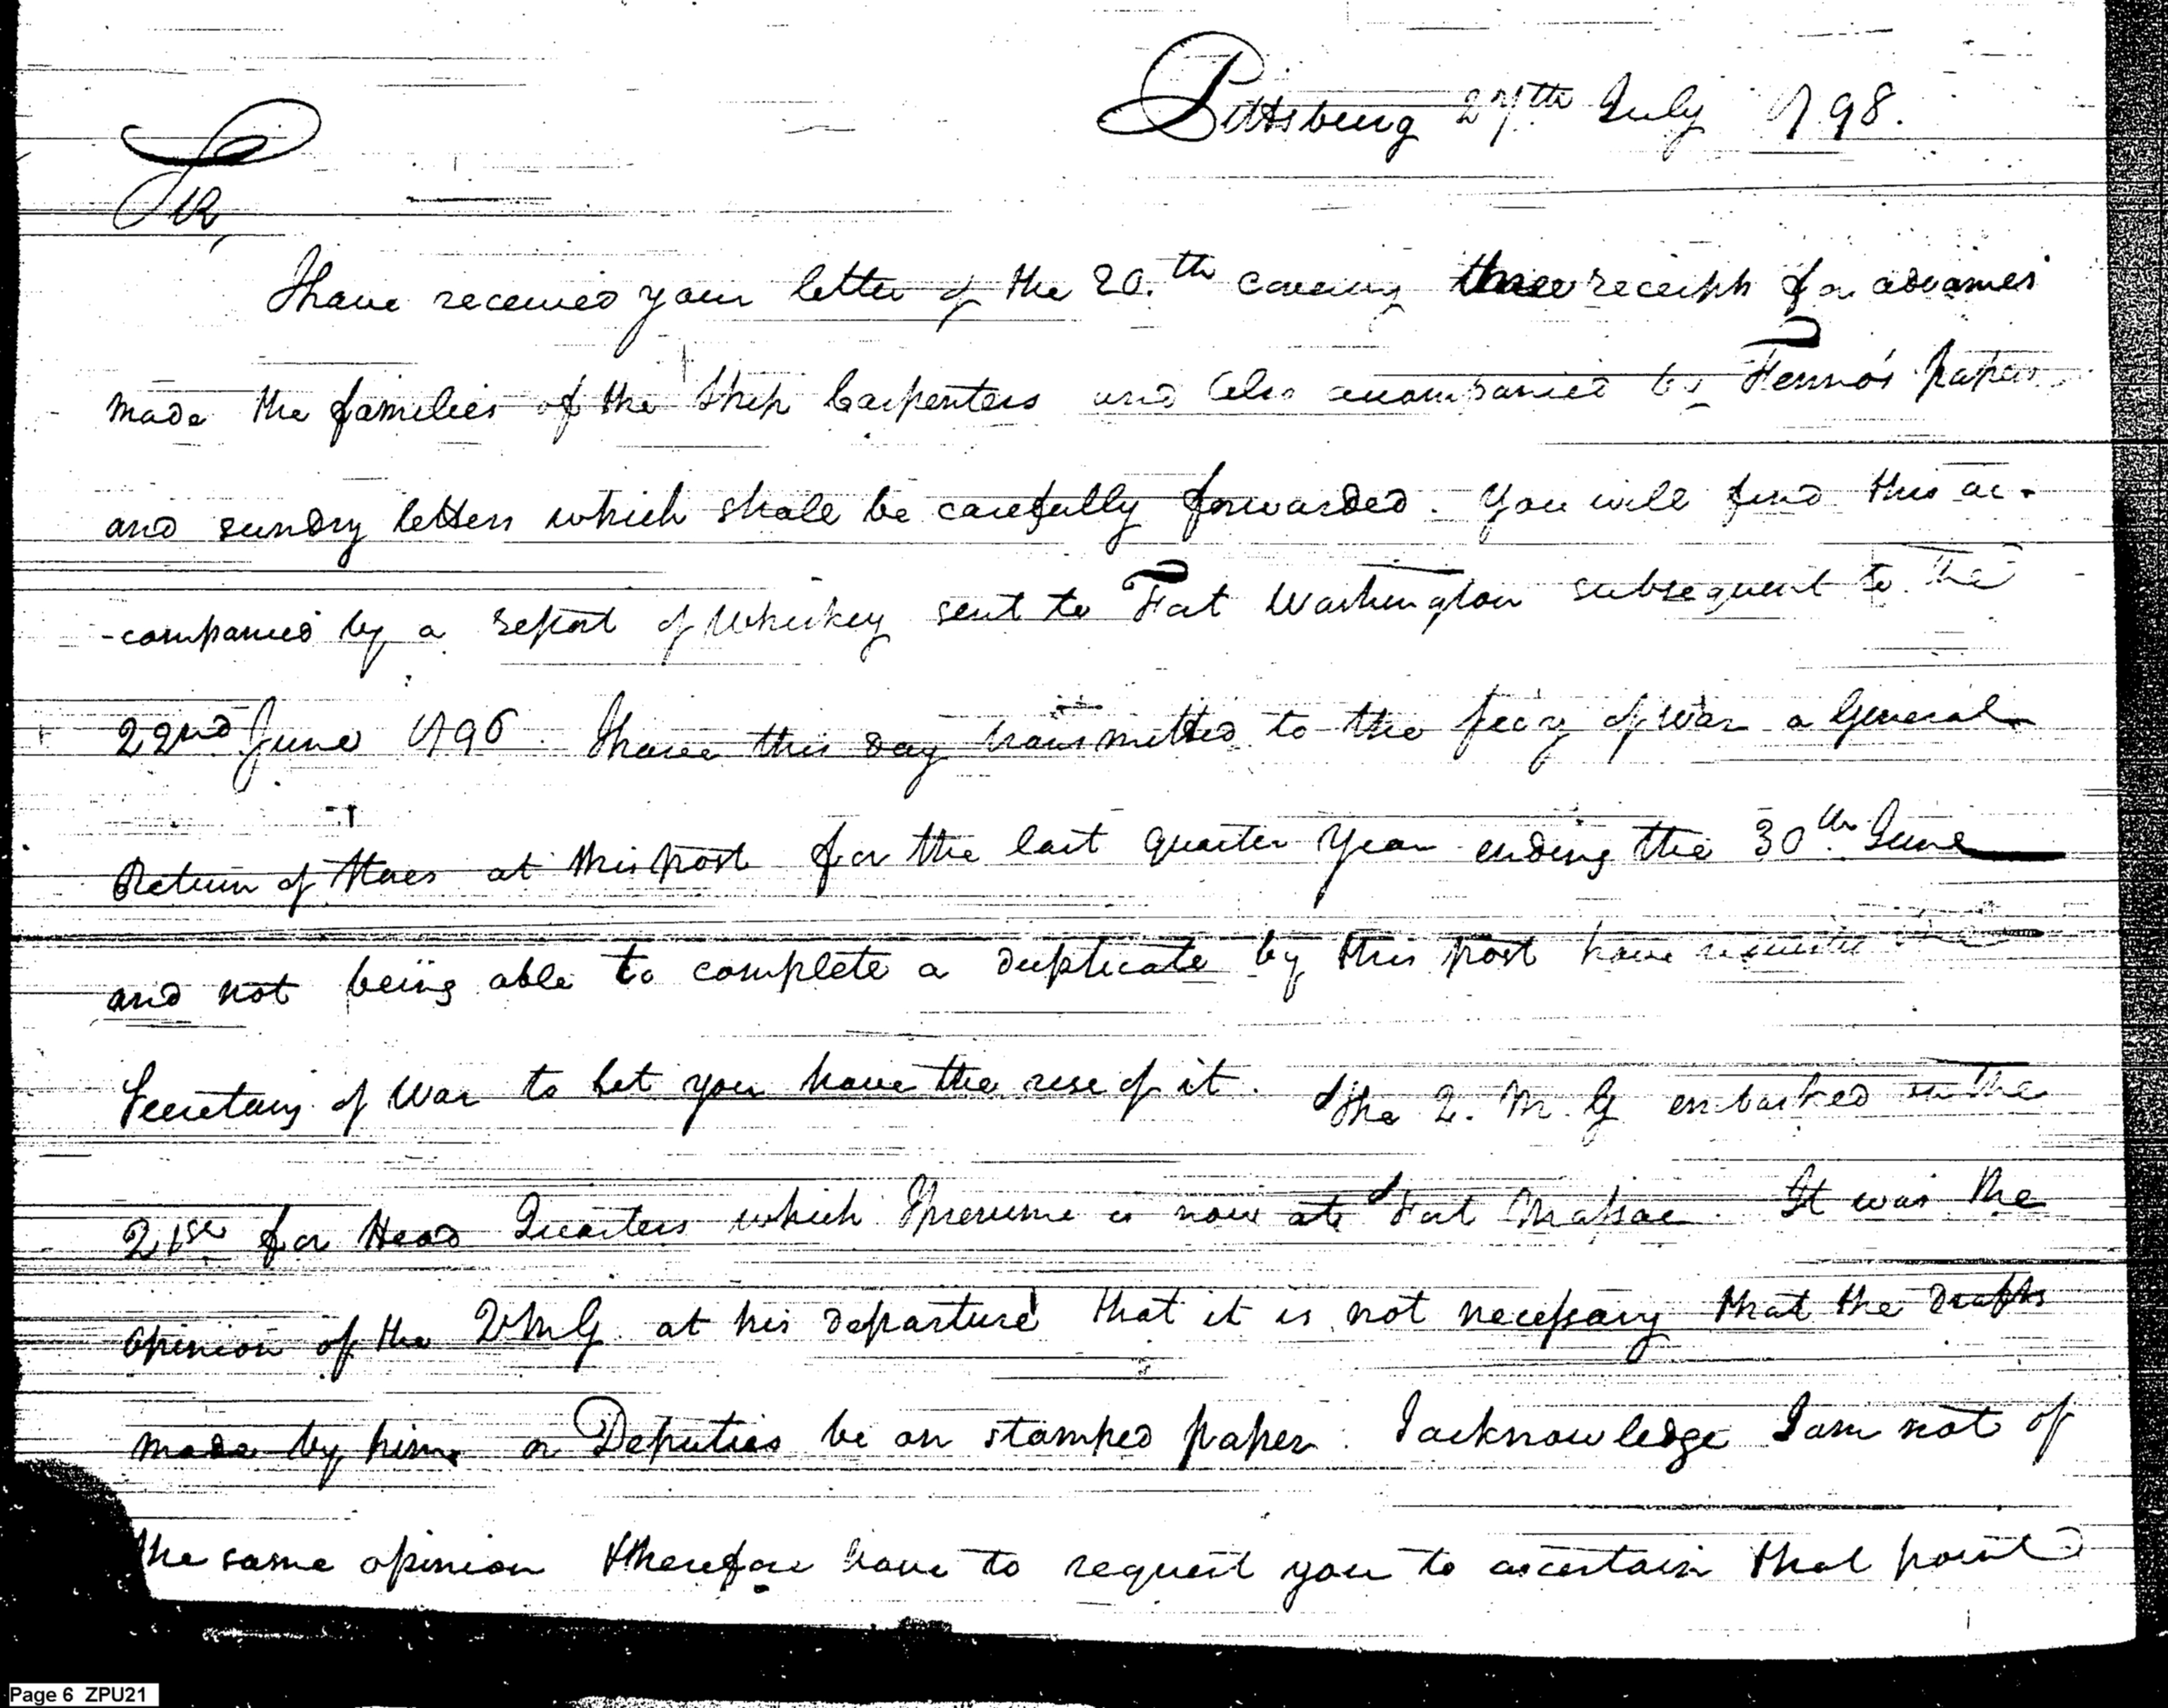 Pittsburg 27th July 1798.
Sir,
I have received your letter of the 20.th covering three receipts for advances
made the families of the Ship Carpenters and also accompanied by Fenno's papers
and sundry letters which shall be carefully forwarded. You will find this ac-
-companied by a report of Whiskey sent to Fort Washington subsequent to the
22nd June 1796 I have this day transmitted to the Secy of War a General
Return of Stores at this post for the last quarter Year ending the 30th June
and not being able to complete a duplicate by this post have requested the
Secretary of War to let you have the use of it. The Q. M. G embarked on the
21st for Head Quarters which I presume is now at Fort Massac. It was the
opinion of the QMG at his departure that it is not necessary that the drafts
made by him or Deputies be on stamped paper. I acknowledge I am not of
the same opinion therefore have to request you to ascertain that point
Page 6 ZPU21